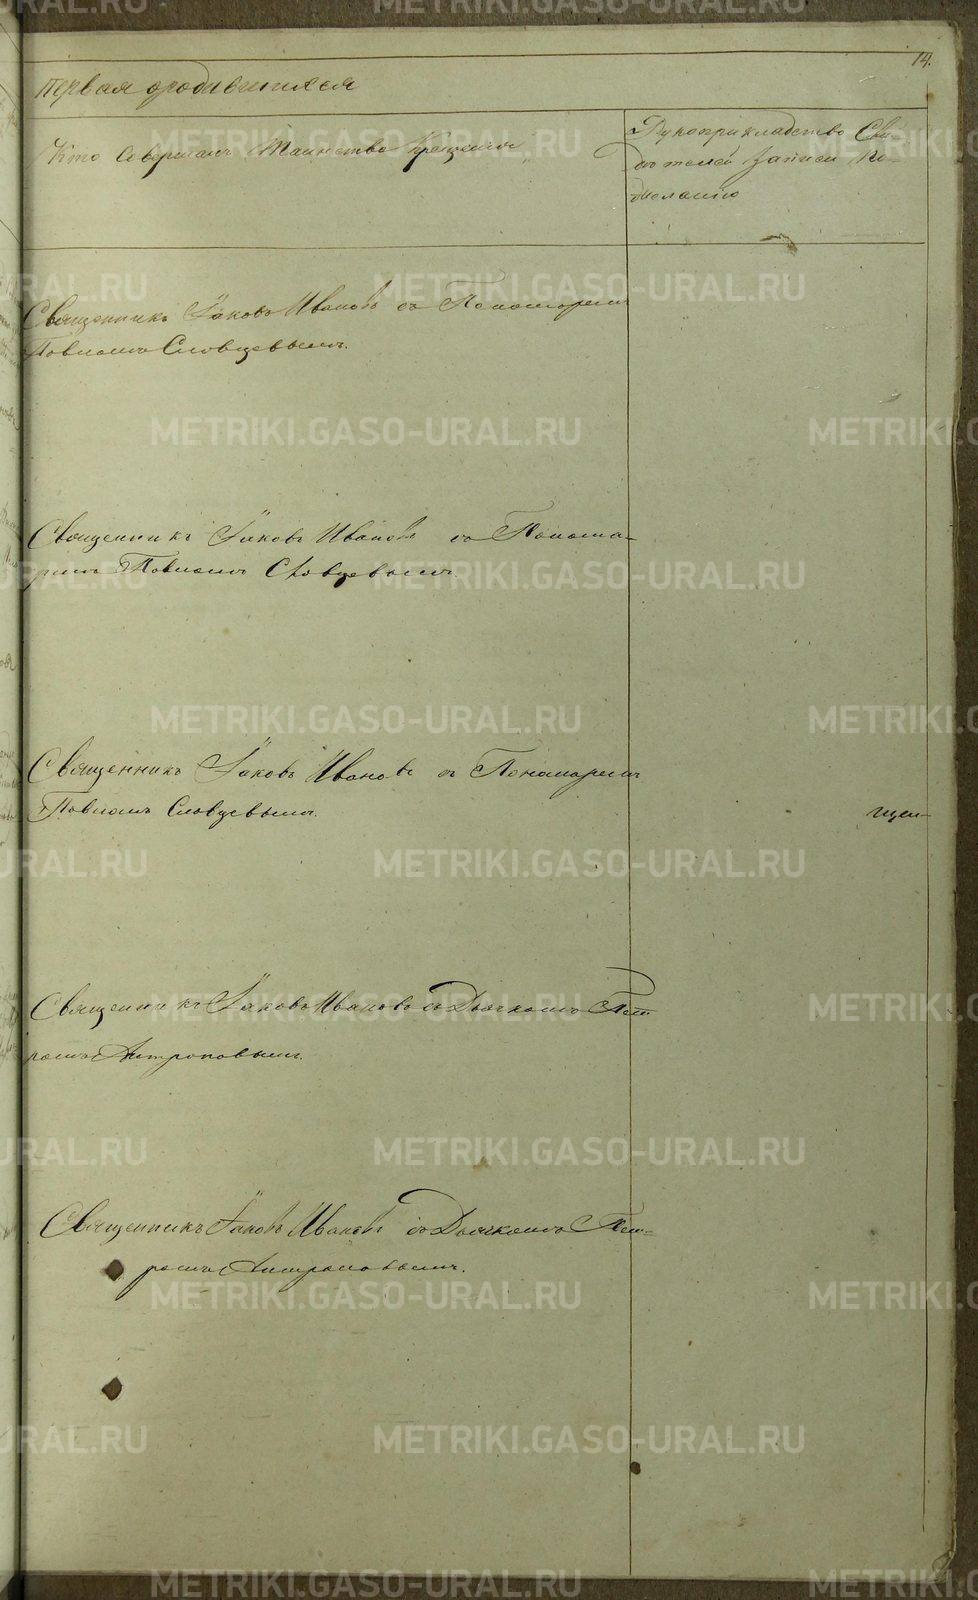 14.
первая ородившихся
Кто Совершалъ Таинство Крещенія
Рукоприкладство Сви-
дѣтелей записи по
желанію
Священникъ Іаковъ Ивановъ съ Пономаремъ
Павломъ Словцевымъ.
Священникъ Іаковъ Ивановъ съ Понома-
ремъ Павломъ Словцевымъ.
Священникъ Іаковъ Ивановъ съ Пономаремъ
Павломъ Словцевымъ.
Священникъ Іаковъ Ивановъ съ Дьячкомъ Пет-
ромъ Антроповымъ.
Священникъ Іаковъ Ивановъ съ Дьячкомъ Пет-
ромъ Антроповымъ.
METRIKI.GASO-URAL.RU